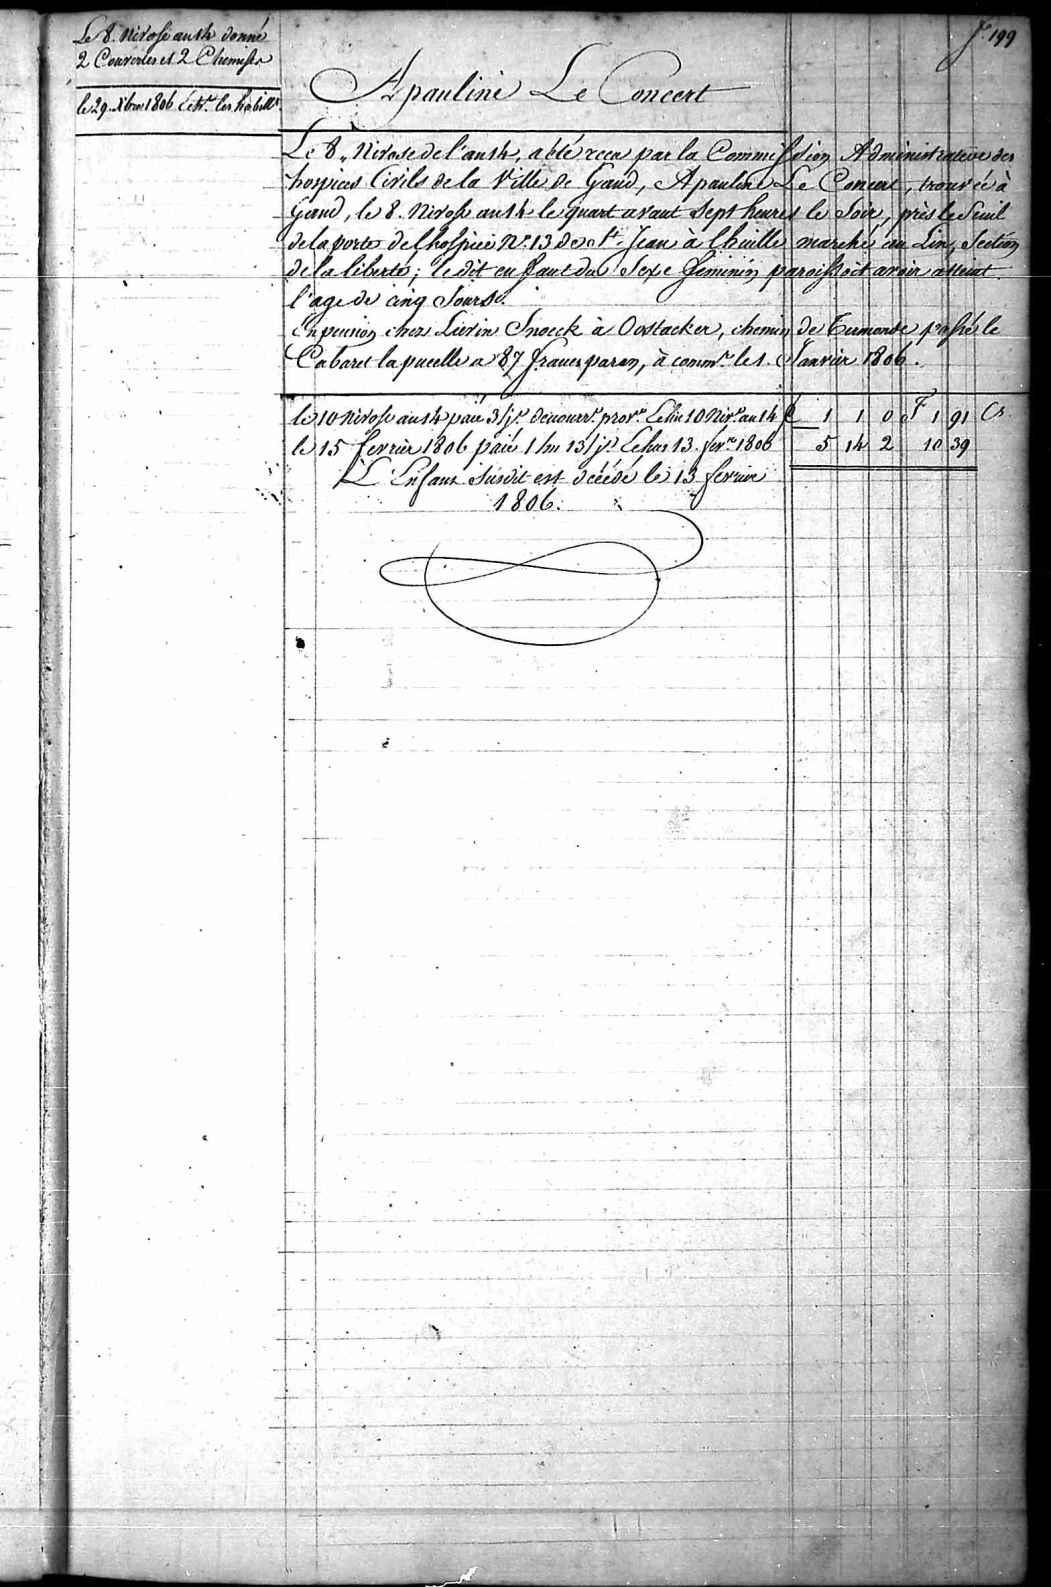 f.° 199
Le 8. nivose an 14 donné
2 Couvertes et 2 Chemises
le 29. Xbre 1806 les habill.s
Apauline Le Concert
Le 8„ Nivose de l'an 14, a été recu par la Commission Administrative des
hospices Civils de la Ville de Gand, Apauline Le Concert, trouvée à
Gand, le 8. Nivose an 14 le quart avant Sept heures le Soir, près le Seuil
de la porte de l'hospice N.° 13 de St. Jean à l'huille marché au Lin, Section
de la liberté; le dit enfant du Sexe feminin paroissoit avoir atteint
l'age de cinq Jours.
En pension chez Livin Snoeck à Oostacker, chemin de Termonde passé le
Cabaret la pucelle a 87 francs par an, à comm.r le 1. Janvier 1806.
le 10 nivose an 14 paié 3 1 j.s de nourr.e prov.re 10 Niv.e an 14 £ 1 1 0 F 1 91 Cs.
le 15 fevrier 1806 paié 1 m 13 j.s 13. fev.r 1806 5 14 2 10 39
L'Enfant Susdit est décédé le 13 fevrier
1806.